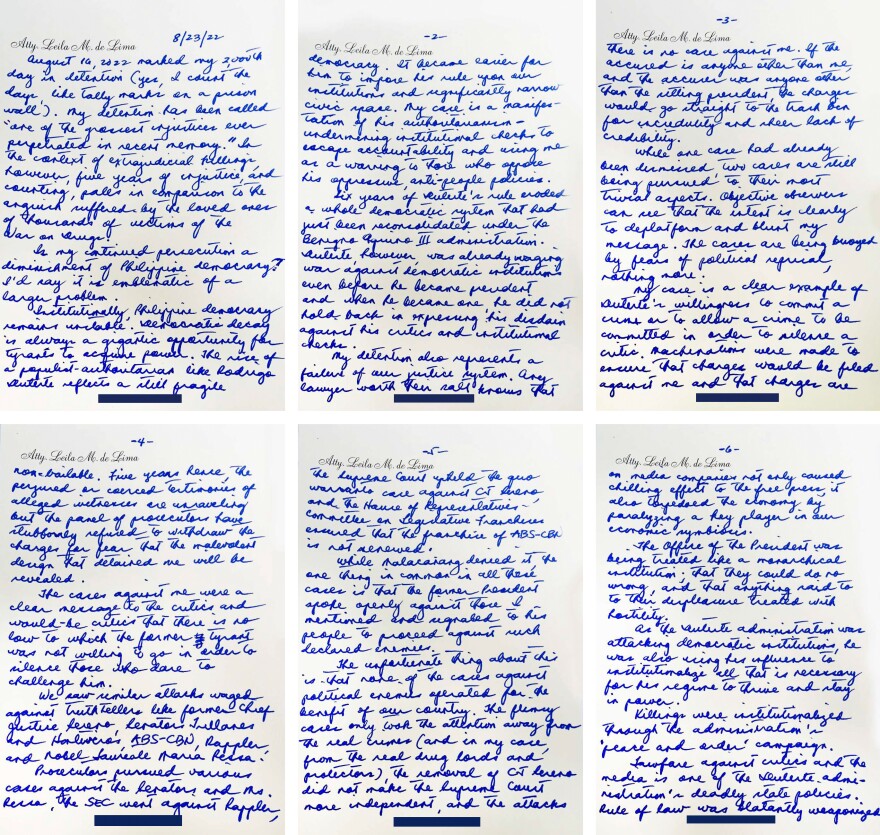 8/23/22
Atty. Leila M. de Lima
August 16, 2022 marked my 2,000th
day in detention (yes, I count the
days like tally marks on a prison
wall). My detention has been called
"one of the grossest injustices ever
perpetrated in recent memory." In
the context of extrajudicial killings,
however, five years of injustice and
counting, palls in comparison to the
anguish suffered by the loved ones
of thousands of victims of the
War on Drugs.
Is my continued persecution a
diminishment of Philippine democracy?
I'd say it is emblematic of a
larger problem.
Institutionally, Philippine democracy
remains unstable. Democratic decay
is always a gigantic opportunity for
tyrants to acquire power. The rise of
a populist-authoritarian like Rodrigo
Duterte reflects a still fragile
-2-
Atty. Leila M. de Lima
democracy. It became easier for
him to impose his rule upon our
institutions and significantly narrow
civic space. My case is a manifes-
tation of his authoritarianism -
undermining institutional checks to
escape accountability and using me
as a warning to those who oppose
his oppressive, anti-people policies.
Six years of Duterte's rule eroded
a whole democratic system that had
just been reconsolidated under the
Benigno Aquino III administration.
Duterte however, was already waging
war against democratic institutions
even before he became president
and when he became one, he did not
hold back in expressing his disdain
against his critics and institutional
checks.
My detention also represents a
failure of our justice system. Any
lawyer worth their salt knows that
-3-
Atty. Leila M. de Lima
there is no case against me. If the
accused is anyone other than me,
and the accuser was anyone other
than the sitting president, the charges
would go straight to the trash bin
for incredulity and sheer lack of
credibility.
While one case had already
been dismissed, two cases are still
being pursued to their most
trivial aspects. Objective observers
can see that the intent is clearly
to deplatform and blunt my
message. The cases are being buoyed
by fears of political reprisal,
nothing more.
My case is a clear example of
Duterte's willingness to commit a
crime or to allow a crime to be
committed in order to silence a
critic. Machinations were made to
ensure that charges would be filed
against me and that charges are
-4-
Atty. Leila M. de Lima
non-bailable. Five years hence, the
perjured or coerced testimonies of
alleged witnesses are unraveling
but the panel of prosecutors have
stubbornly refused to withdraw the
charges for fear that the malevolent
design that detained me will be
revealed.
The cases against me were a
clear message to the critics and
would-be critics that there is no
low to which the former tyrant
was not willing to go in order to
silence those who dare to
challenge him.
We saw similar attacks waged
against truthtellers like former Chief
Justice Sereno, Senators Trillanes
and Hontiveros, ABS-CBN, Rappler,
and Nobel Laureate Maria Ressa.
Prosecutors pursued various
cases against the Senators and Ms.
Ressa, the SEC went against Rappler,
-5-
Atty. Leila M. de Lima
the Supreme Court upheld the quo
warranto case against CJ Sereno
and the House of Representatives -
Committee on Legislative Franchises
ensured that the franchise of ABS-CBN
is not renewed.
While Malacañang denied it, the
one thing in common in all these
cases is that the former President
spoke openly against those I
mentioned and signaled to his
people to proceed against such
declared enemies.
The unfortunate thing about this
is that none of the cases against
political enemies operated for the
benefit of our country. The flimsy
cases only took the attention away from
the real crimes (and in my case,
from the real drug lords and
protectors), the removal of CJ Sereno
did not make the Supreme Court
more independent, and the attacks
-6-
Atty. Leila M. de Lima
on media companies not only caused
chilling effect to the free press, it
also torpedoed the economy by
paralyzing a key player in our
economic symbiosis.
The Office of the President was
being treated like a monarchical
institution; that they could do no
wrong, and that anything said to
to their displeasure treated with
hostility.
As the Duterte administration was
attacking democratic institutions, he
was also using his influence to
institutionalize all that is necessary
for his regime to thrive and stay
in power.
Killings were institutionalized
through the administration's
'peace and order' campaign.
Lawfare against critics and the
media is one of the Duterte admi-
nistration's deadly state policies.
Rule of Law was blatantly weaponized